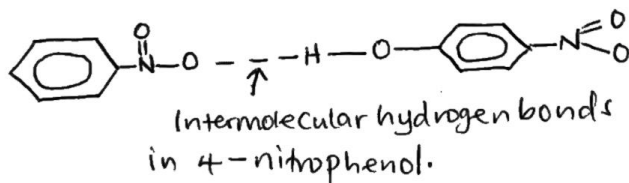 O O
N-O---H-O N O
Intermolecular hydrogen bonds
in 4-nitrophenol.